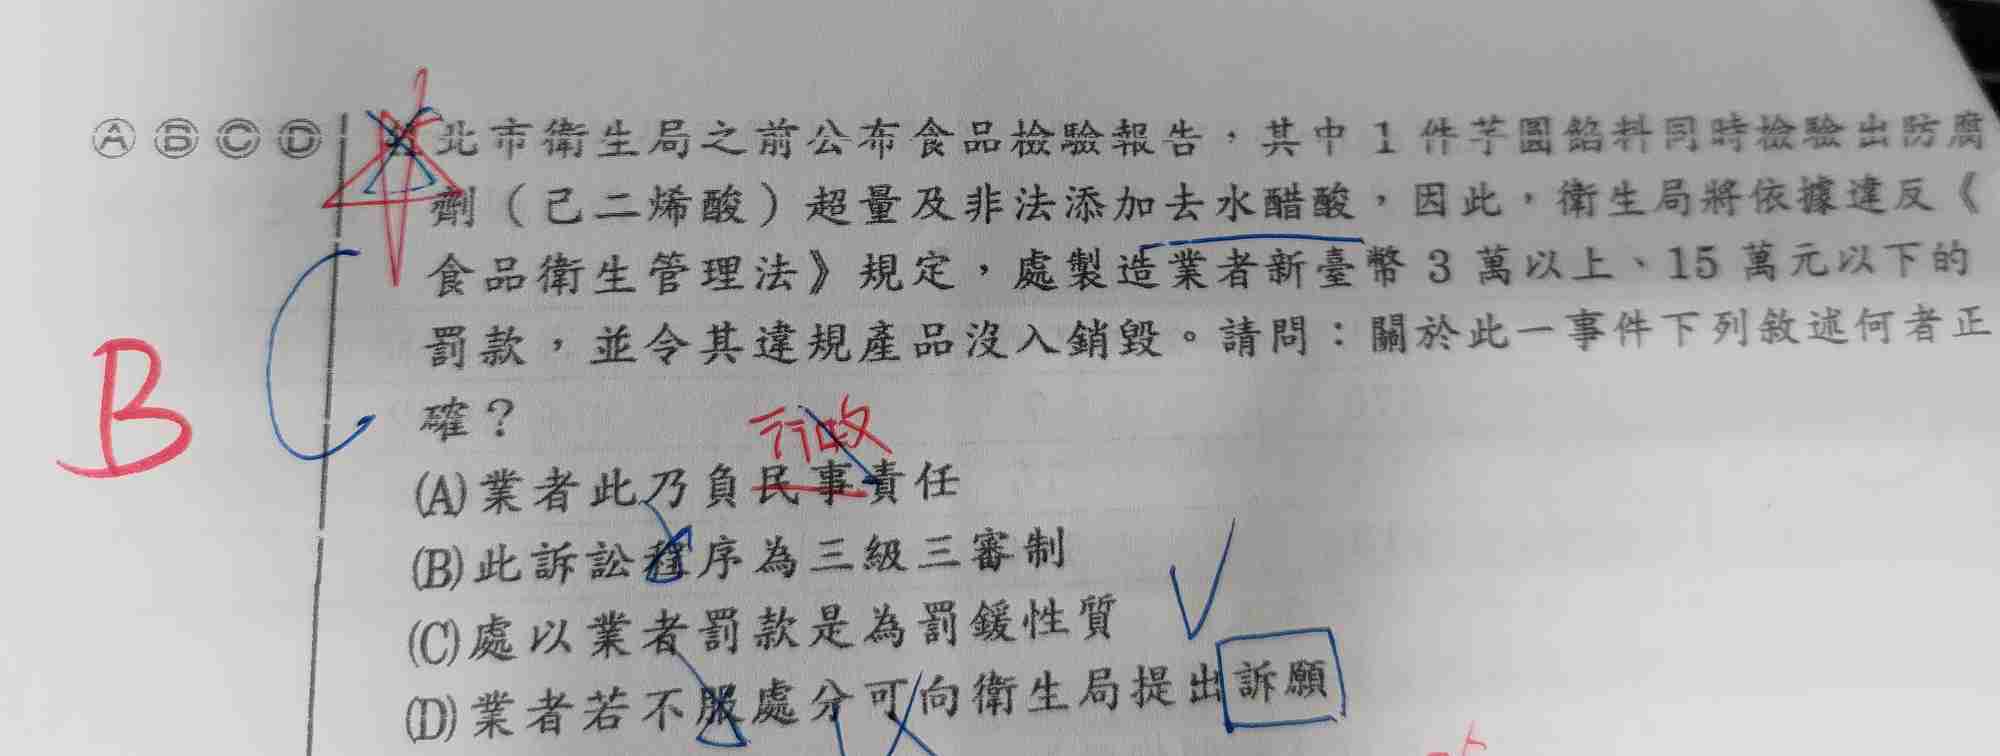 Ⓐ Ⓑ Ⓒ Ⓓ
北市衛生局之前公布食品檢驗報告，其中 1 件芋圓餡料同時檢驗出防腐
劑（己二烯酸）超量及非法添加去水醋酸，因此，衛生局將依據違反《
食品衛生管理法》規定，處製造業者新臺幣 3 萬以上、15 萬元以下的
罰款，並令其違規產品沒入銷毀。請問：關於此一事件下列敘述何者正
確？
B
行政
(A)業者此乃負民事責任
(B)此訴訟程序為三級三審制
(C)處以業者罰款是為罰鍰性質
(D)業者若不服處分可向衛生局提出訴願